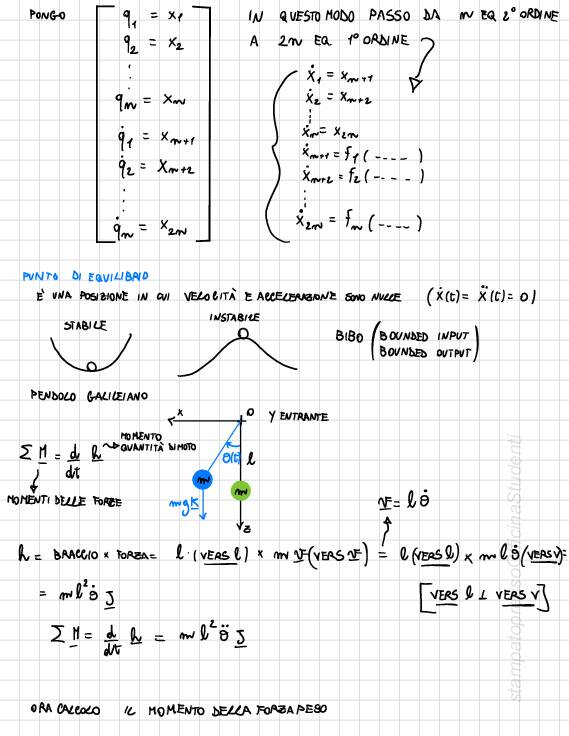 PONGO
q1 = x1
q2 = x2
⋮
qn = xn
q̇1 = xn+1
q̇2 = xn+2
⋮
q̇n = x2n
IN QUESTO MODO PASSO DA n EQ 2° ORDINE
A 2n EQ 1° ORDINE
ẋ1 = xn+1
ẋ2 = xn+2
⋮
ẋn = x2n
ẋn+1 = f1 (----)
ẋn+2 = f2 (----)
⋮
ẋ2n = fn (----)
PUNTO DI EQUILIBRIO
È UNA POSIZIONE IN CUI VELOCITÀ E ACCELERAZIONE SONO NULLE (ẋ(t) = ẍ(t) = 0)
STABILE
INSTABILE
BIBO (BOUNDED INPUT
BOUNDED OUTPUT)
PENDOLO GALILEIANO
x O Y ENTRANTE
θ(t) l
m
m
mgk
z
Σ M = d/dt h
MOMENTO
QUANTITÀ DI MOTO
MOMENTI DELLE FORZE
v = l θ̇
h = BRACCIO × FORZA = l · (VERS l) × m v (VERS v) = l (VERS l) × m l θ̇ (VERS v) =
= m l² θ̇ J
[VERS l ⊥ VERS v]
Σ M = d/dt h = m l² θ̈ J
ORA CALCOLO IL MOMENTO DELLA FORZA PESO